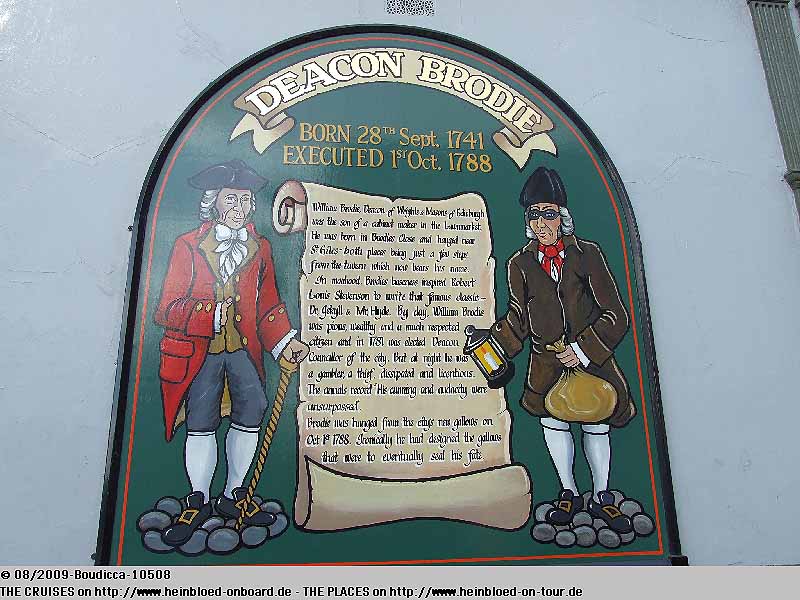 DEACON BRODIE
BORN 28TH Sept. 1741
EXECUTED 1ST Oct. 1788
William Brodie, Deacon of Wrights & Masons of Edinburgh
was the son of a cabinet maker in the Lawnmarket.
He was born in Brodies Close and hanged near
St Giles - both places being just a few steps
from the tavern which now bears his name.
In manhood, Brodies baseness inspired Robert
Louis Stevenson to write that famous classic -
Dr. Jekyll & Mr. Hyde. By day, William Brodie
was pious, wealthy and a much respected
citizen and in 1781 was elected Deacon
Councillor of the city. But at night he was
a gambler, a thief, dissipated and licentious.
The annals record "His cunning and audacity were
unsurpassed".
Brodie was hanged from the city's new gallows on
Oct 1st 1788. Ironically he had designed the gallows
that were to eventually seal his fate.
© 08/2009-Boudicca-10508
THE CRUISES on http://www.heinbloed-onboard.de - THE PLACES on http://www.heinbloed-on-tour.de